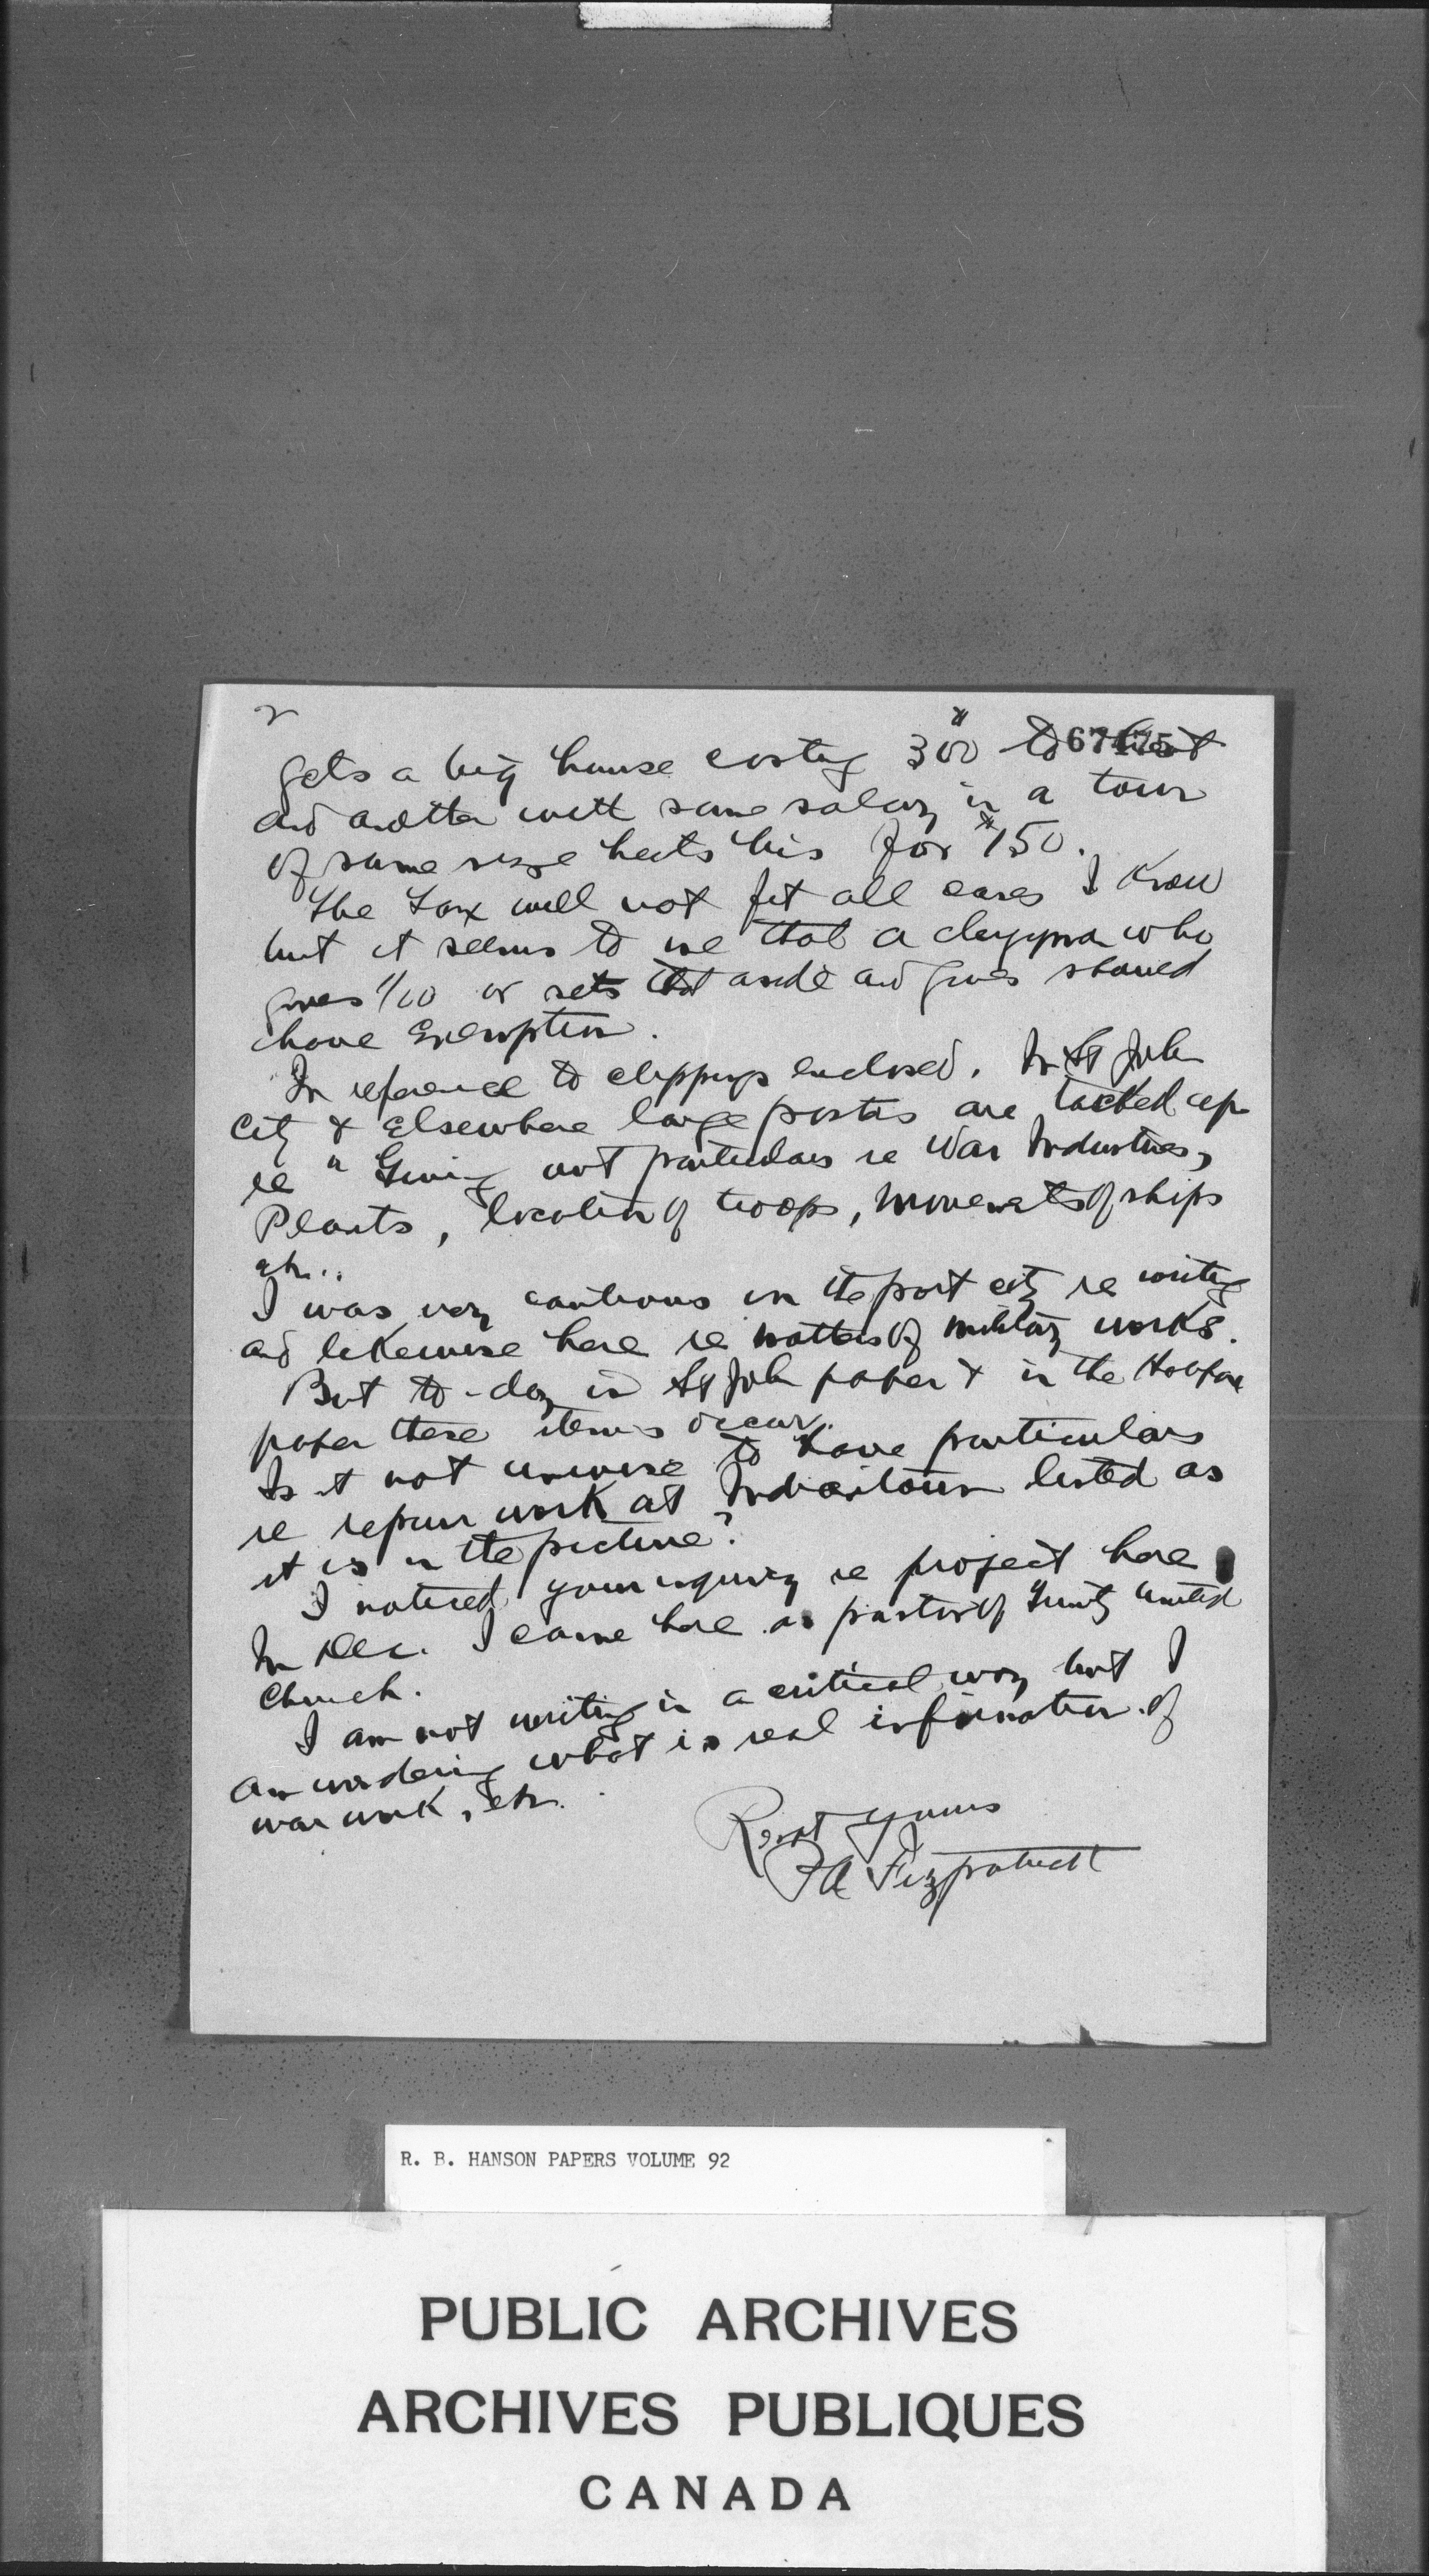 2
67475
gets a big house costing 300$ to heat
and another with same salary in a town
of same size heats his for $150.
The Tax will not fit all cases I know
but it seems to me that a clergyman who
gives 1/10 or sets that aside and gives should
have exemption.
In reference to clippings enclosed. In St John
City & Elsewhere large posters are tacked up
re " Giving out particulars re War Industries,
Plants, location of troops, movements of ships
etc..
I was very cautious in the port city re writing
and likewise here re matters of military works.
But to-day in St John paper & in the Halifax
paper these items occur.
Is it not unwise to have particulars
re repair work at Indiantown listed as
it is in the picture?
I noticed your inquiry re project here
In Dec. I came here as pastor of Trinity United
Church.
I am not writing in a critical way but I
am wondering what is real information of
war work, etc.
Respt yours
Fitzpatrick
R. B. HANSON PAPERS VOLUME 92
PUBLIC ARCHIVES
ARCHIVES PUBLIQUES
CANADA